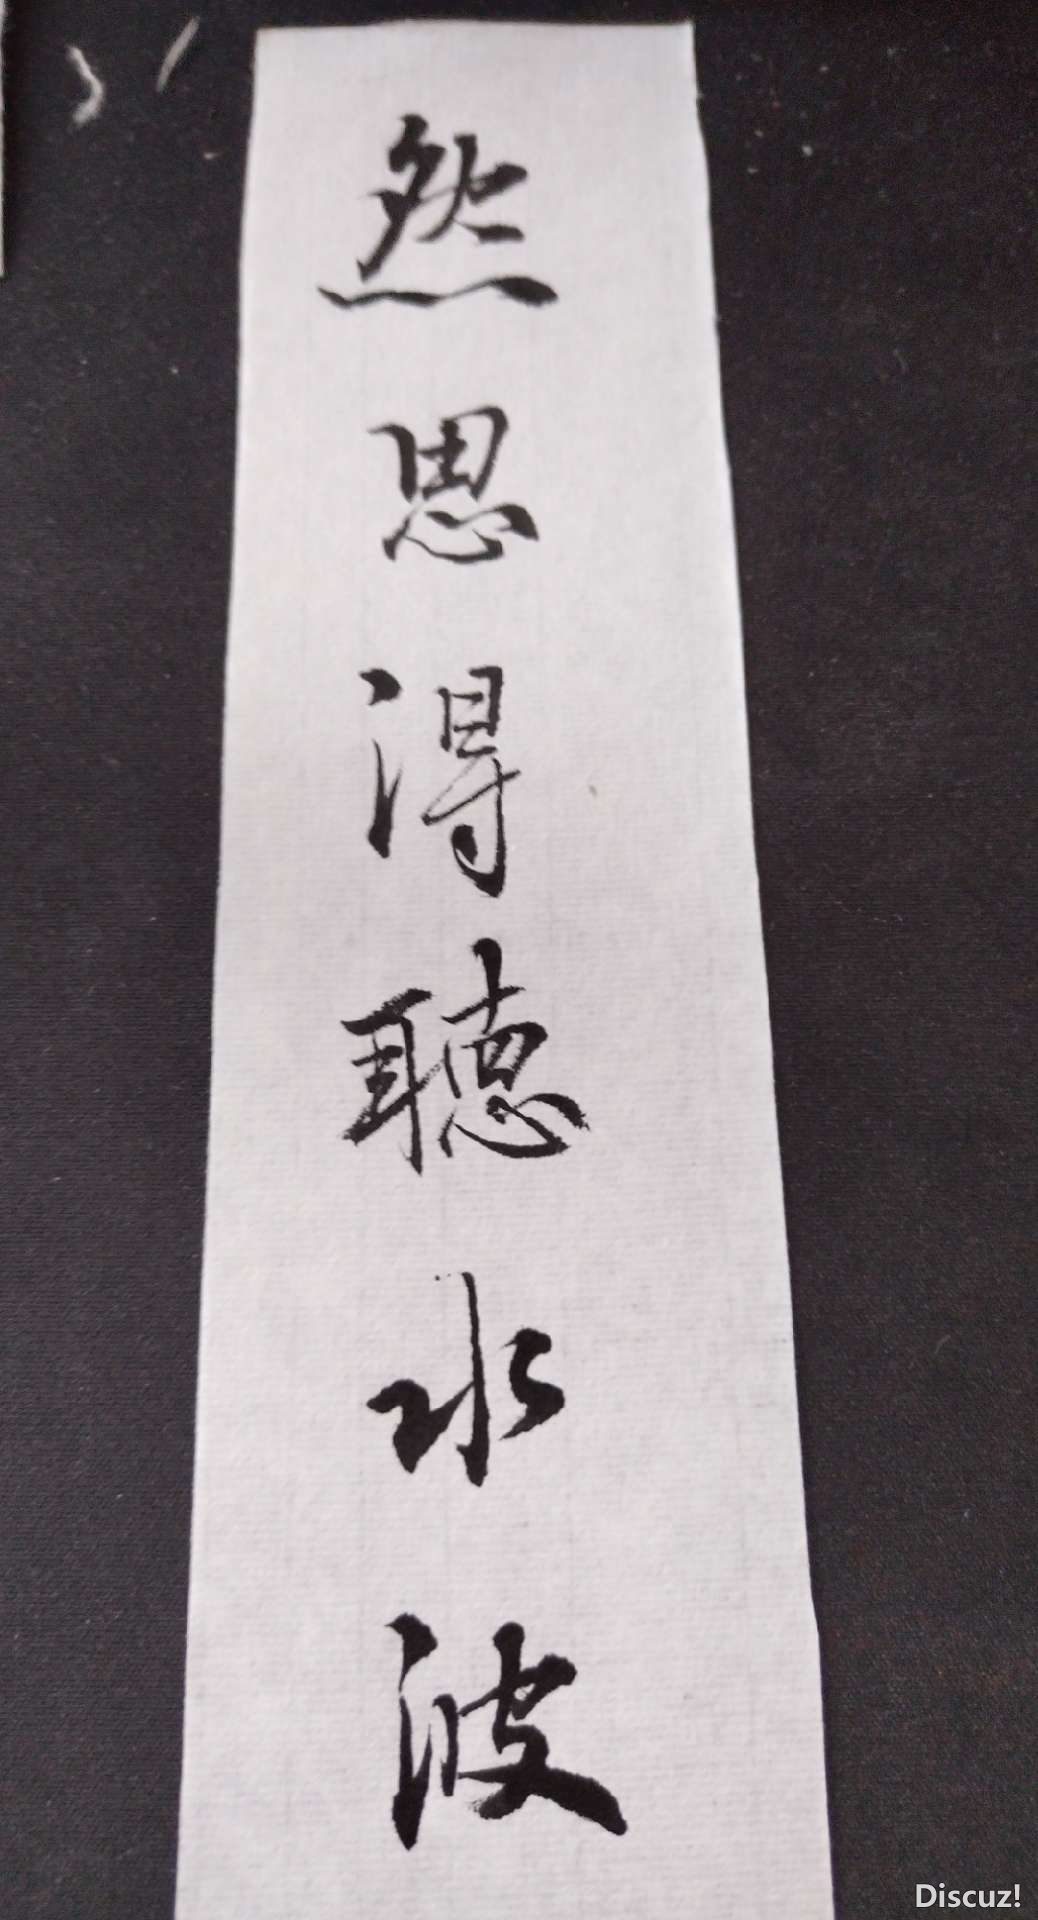 然思得聴水波
Discuz!